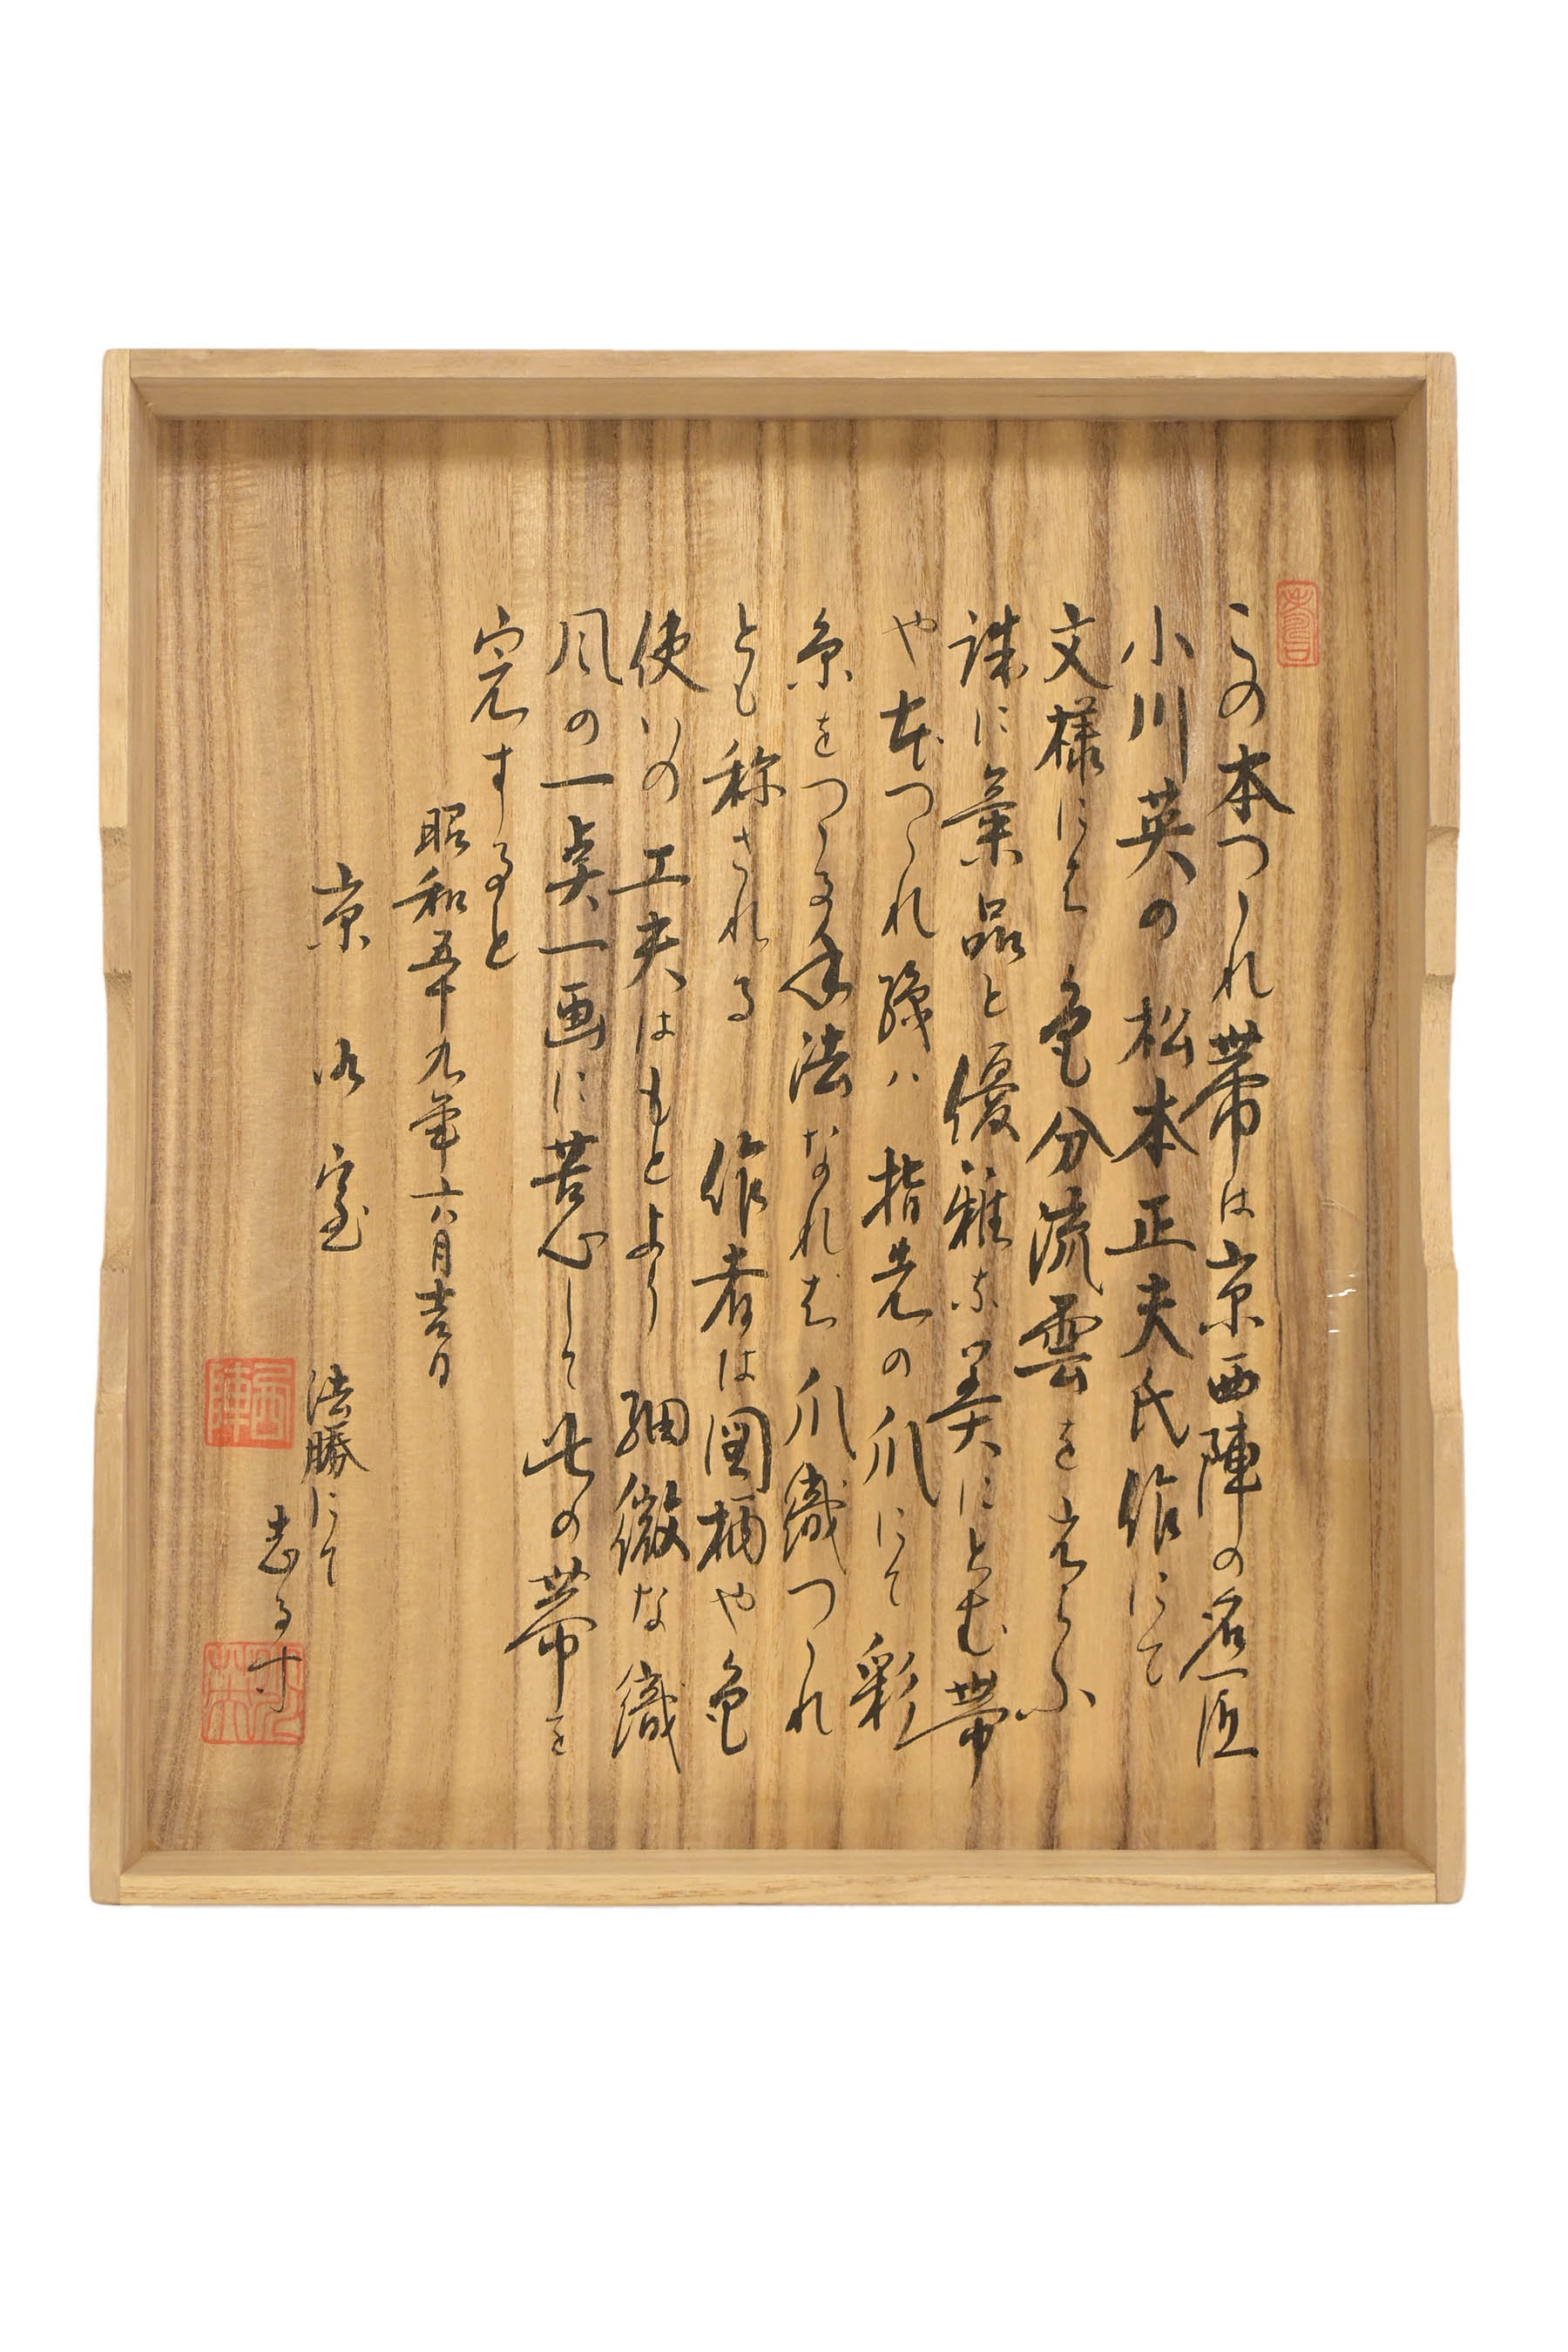 この本つゝれ帯は京西陣の名匠
小川英の松本正夫氏作にて
文様には色分流雲をあらふ
誠に気品と優雅な美にとむ帯
や 本つゝれ織ハ指先の爪にて彩
糸をつゝる手法なれば爪織つゝれ
とも称される 作者は図柄や色
使いの工夫はもとより細微な織
風の一点一画に苦心して此の帯を
完すると
昭和五十九年六月吉日
京 室 法勝にて
志るす
西陣